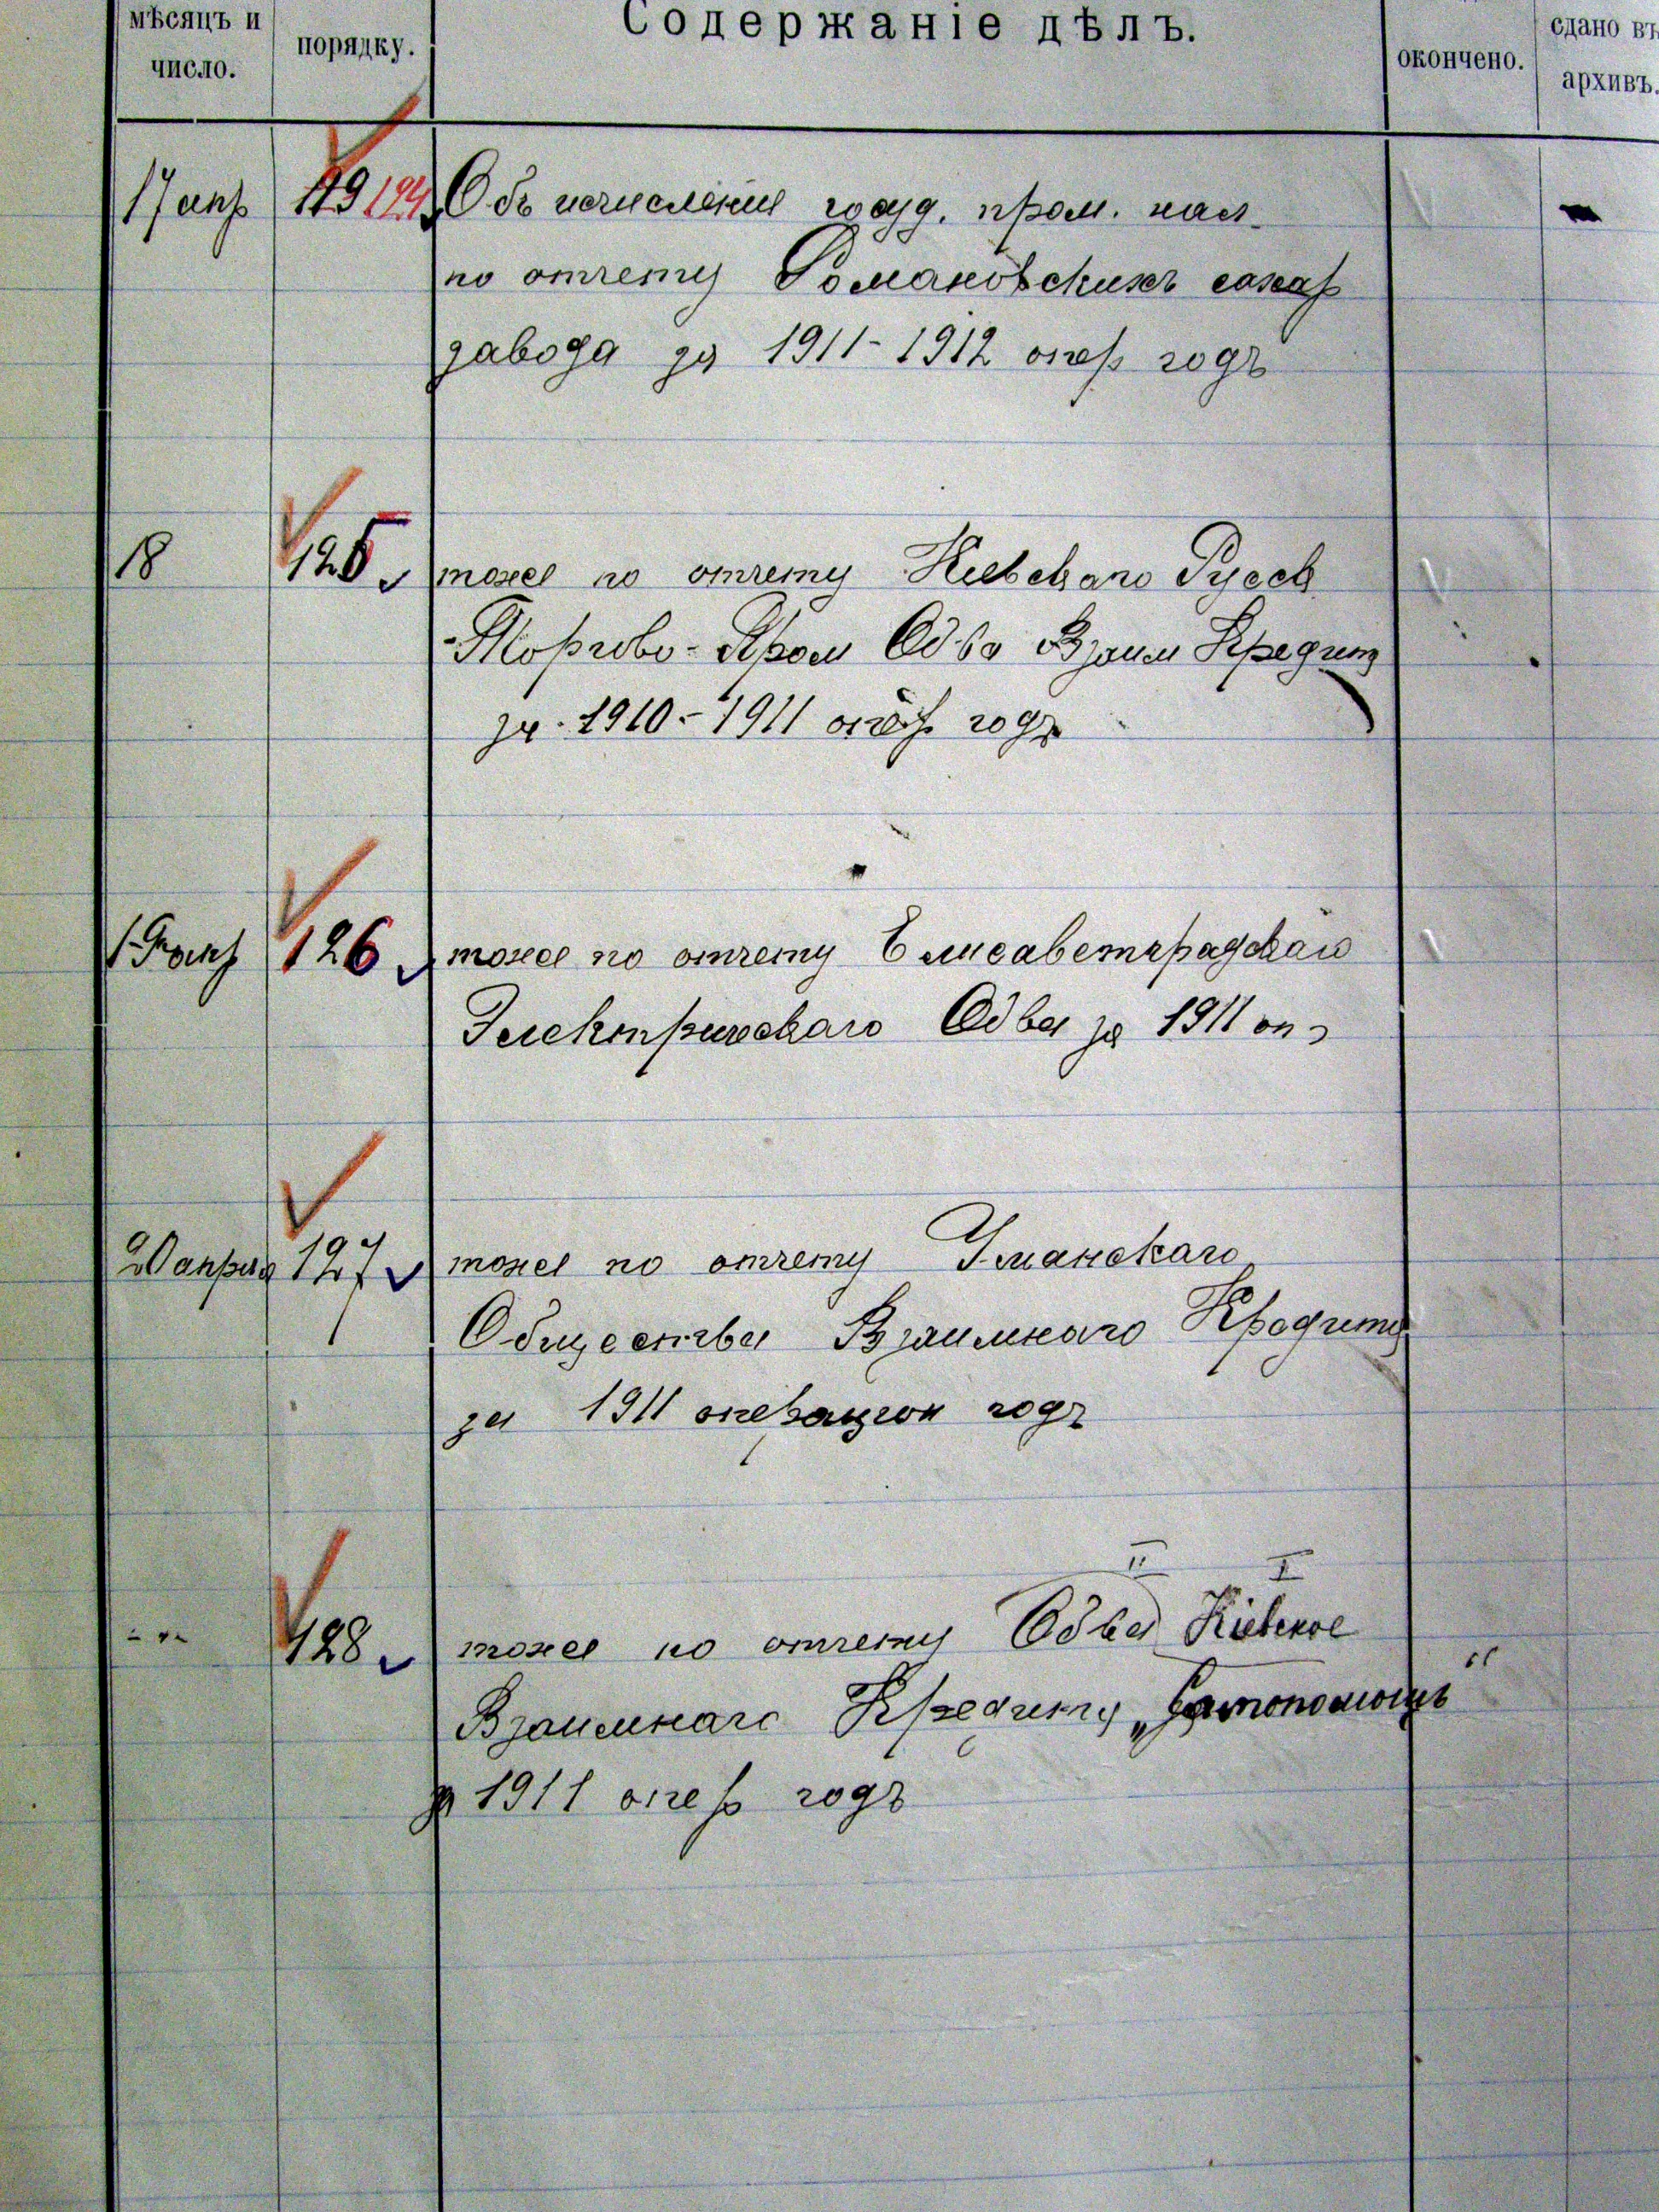 мѣсяцъ и число.
порядку.
Содержаніе дѣлъ.
окончено.
сдано въ архивъ.
17 апр 124 Объ исчисленіи госуд. пром. нал.
по отчету Романовскихъ сахар
завода за 1911-1912 опер годъ
18 125 тоже по отчету Кіевскаго Русск
-Торгово-Пром Об ва Взаим Кредита
за 1910-1911 опер годъ
19 апр 126 тоже по отчету Елисаветградскаго
Электрическаго Об ва за 1911 оп
20 апреля 127 тоже по отчету Уманскаго
Общества Взаимнаго Кредита
за 1911 операцион годъ
II I
-"- 128 тоже по отчету Об ва Кіевское
Взаимнаго Кредита „Самопомощь"
за 1911 опер годъ